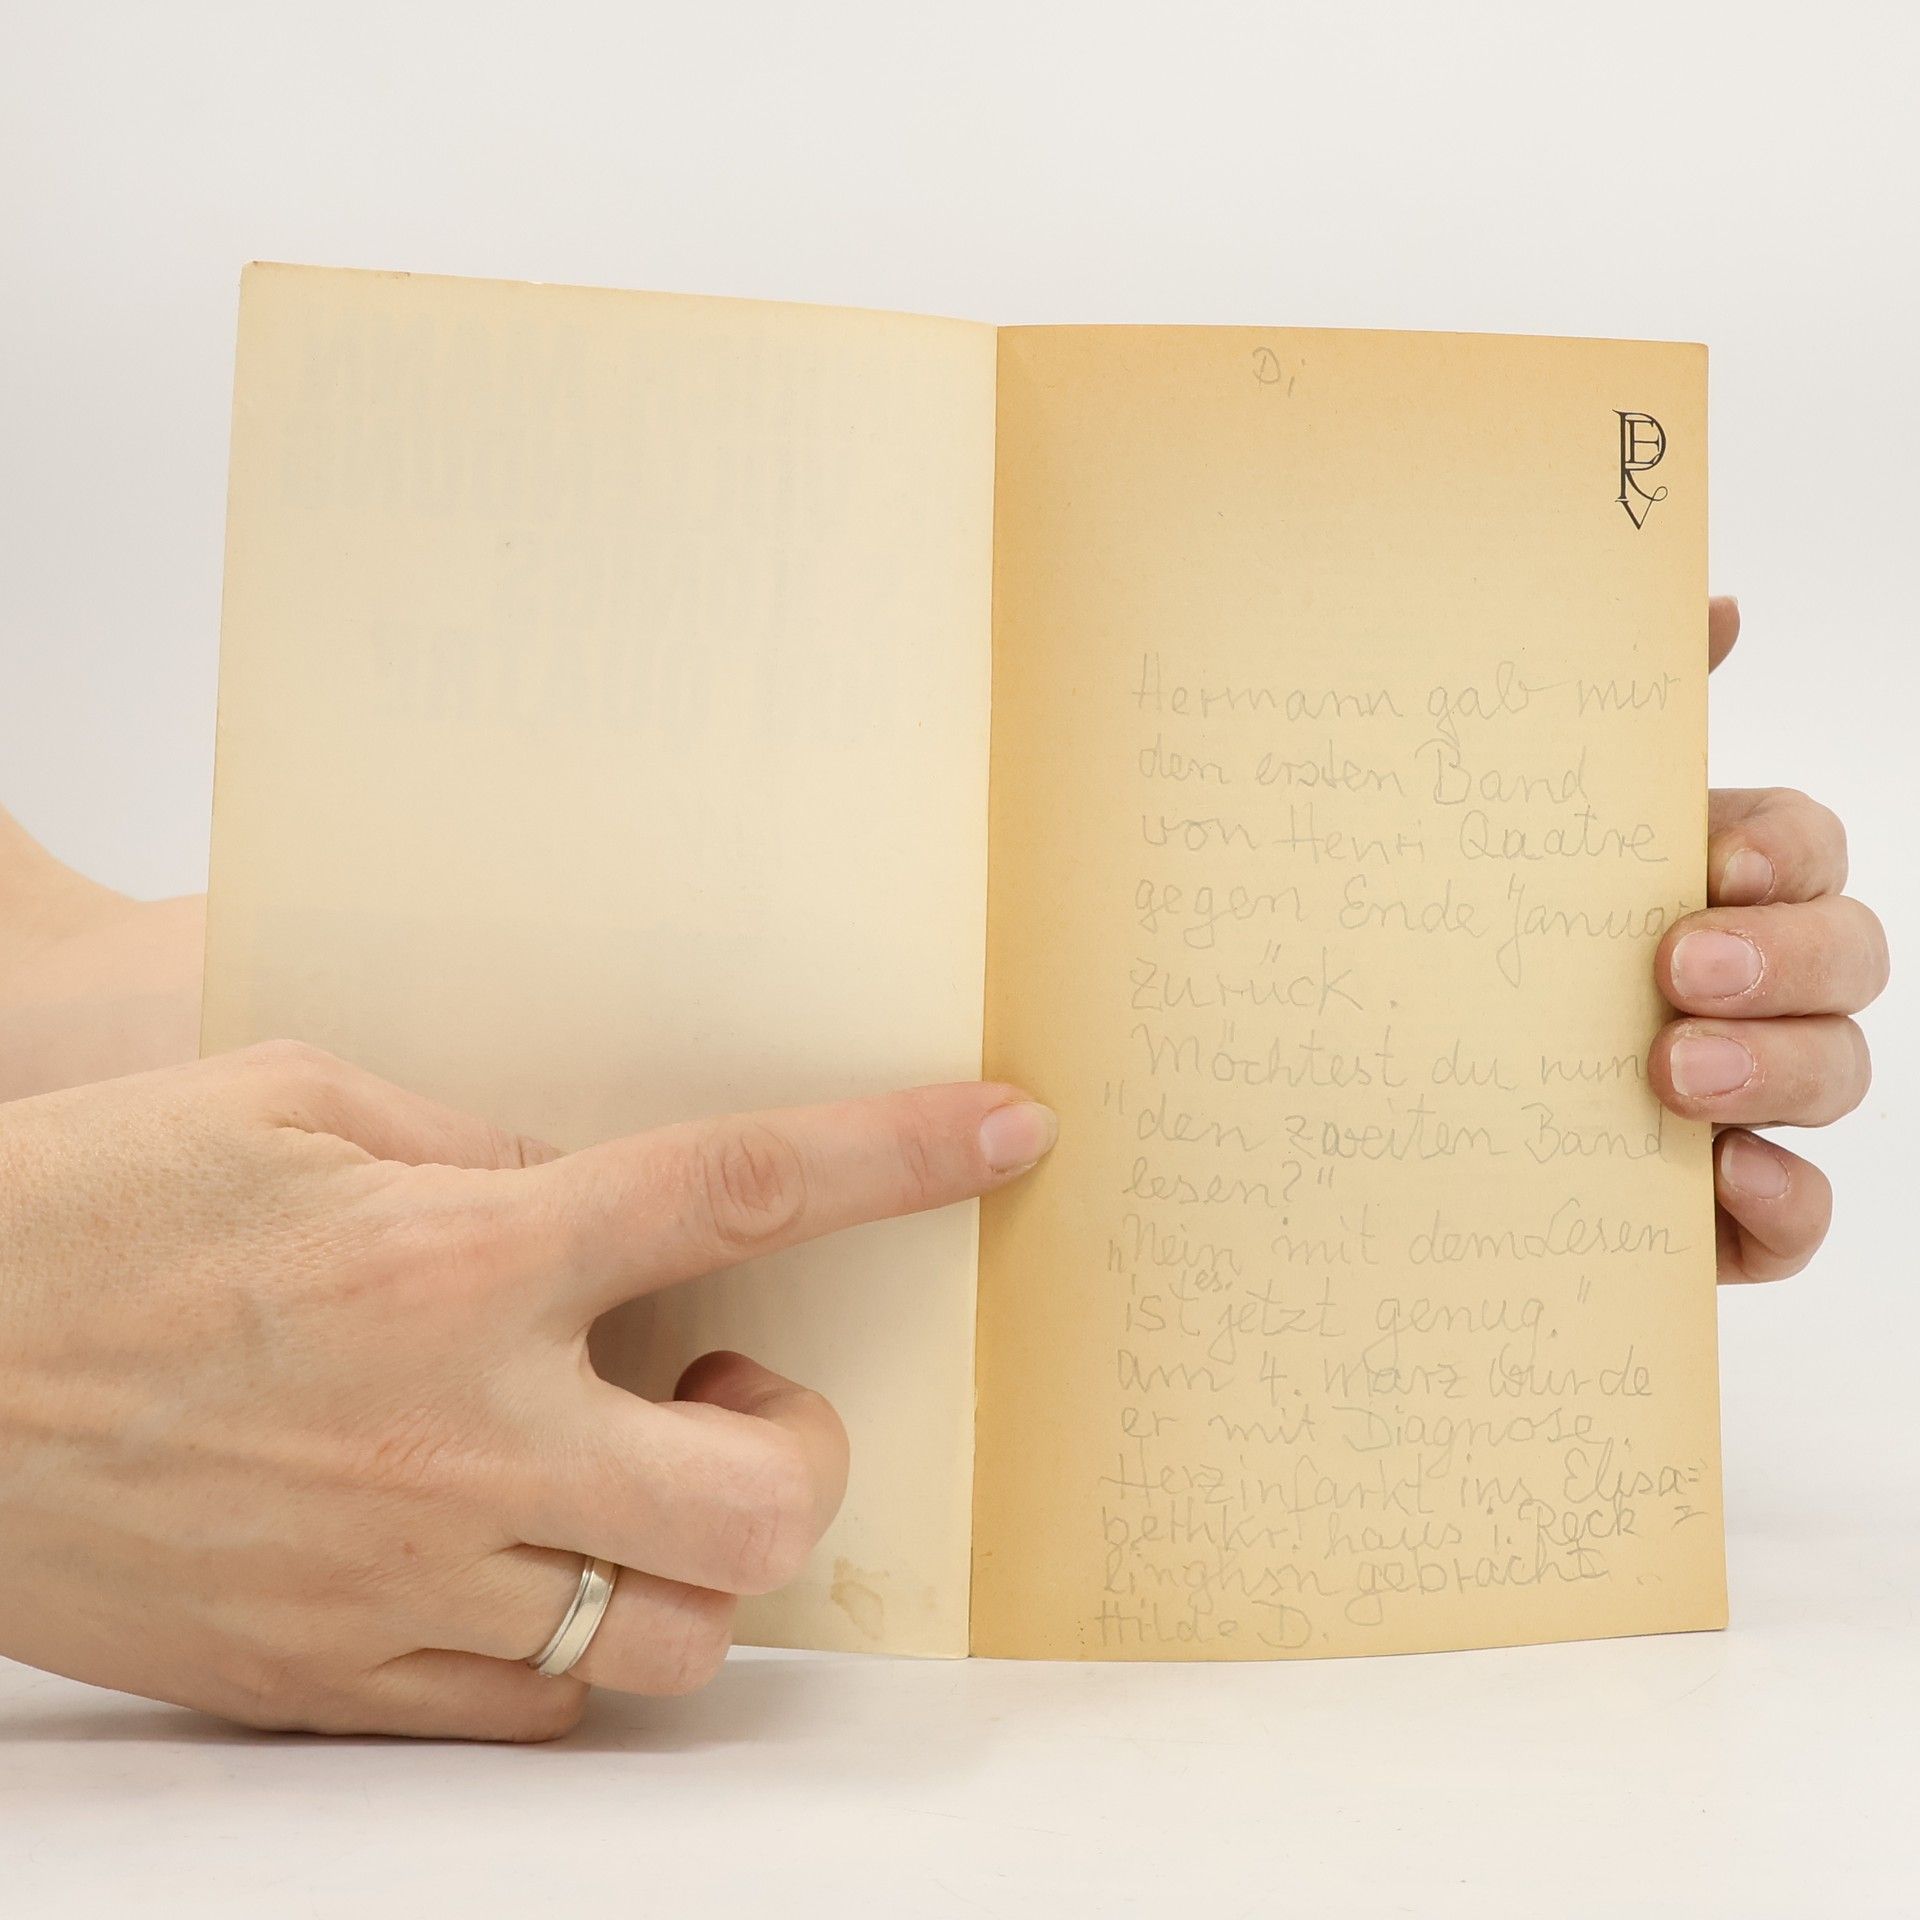 Di
PEV
Hermann gab mir
den ersten Band
von Henri Quatre
gegen Ende Januar
zurück.
Möchtest du nun
"den zweiten Band
lesen?"
"Nein mit dem Lesen
ist es jetzt genug."
am 4. März wurde
er mit Diagnose
Herzinfarkt ins Elisa=
bethkr. haus i. Reck=
linghsn gebracht.
Hilde D.